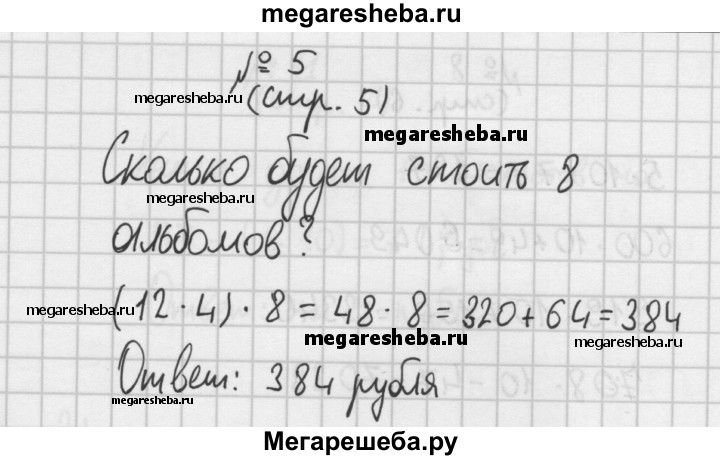 megaresheba.ru
№ 5
megaresheba.ru
(стр. 5)
megaresheba.ru
Сколько будет стоить 8
megaresheba.ru
альбомов?
megaresheba.ru
(12 · 4) · 8 = 48 · 8 = 320 + 64 = 384
megaresheba.ru
Ответ: 384 рубля
megaresheba.ru
Мегарешеба.ру